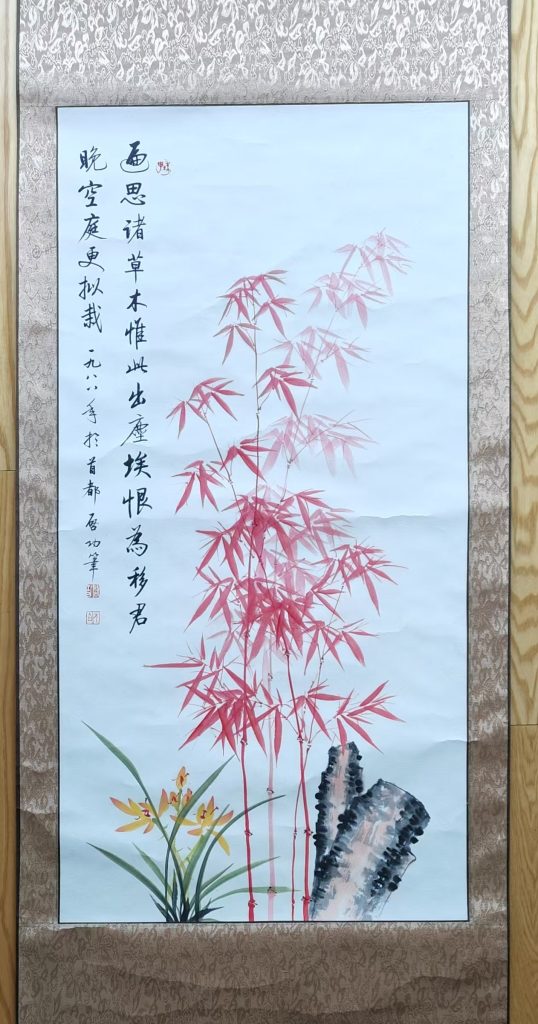 遍思诸草木惟此出尘埃恨為移君
晚空庭更拟栽 一九八八年於首都 启功筆